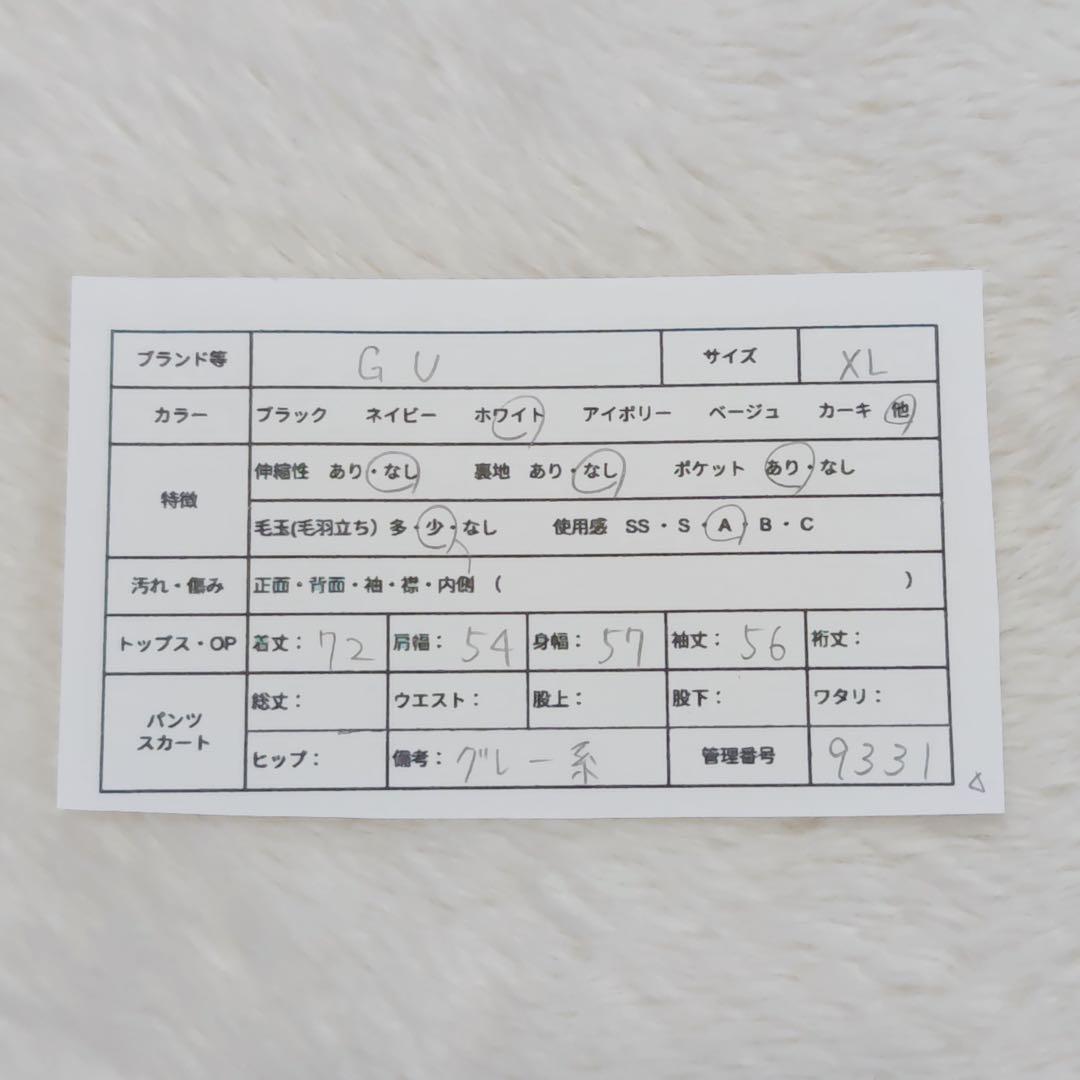 ブランド等 GU サイズ XL
カラー ブラック ネイビー ホワイト アイボリー ベージュ カーキ 他
特徴 伸縮性 あり・なし 裏地 あり・なし ポケット あり・なし
毛玉(毛羽立ち) 多・少・なし 使用感 SS・S・A・B・C
汚れ・傷み 正面・背面・袖・襟・内側 ( )
トップス・OP 着丈:72 肩幅:54 身幅:57 袖丈:56 裄丈:
パンツ スカート 総丈: ウエスト: 股上: 股下: ワタリ:
ヒップ: 備考:グレー系 管理番号 9331